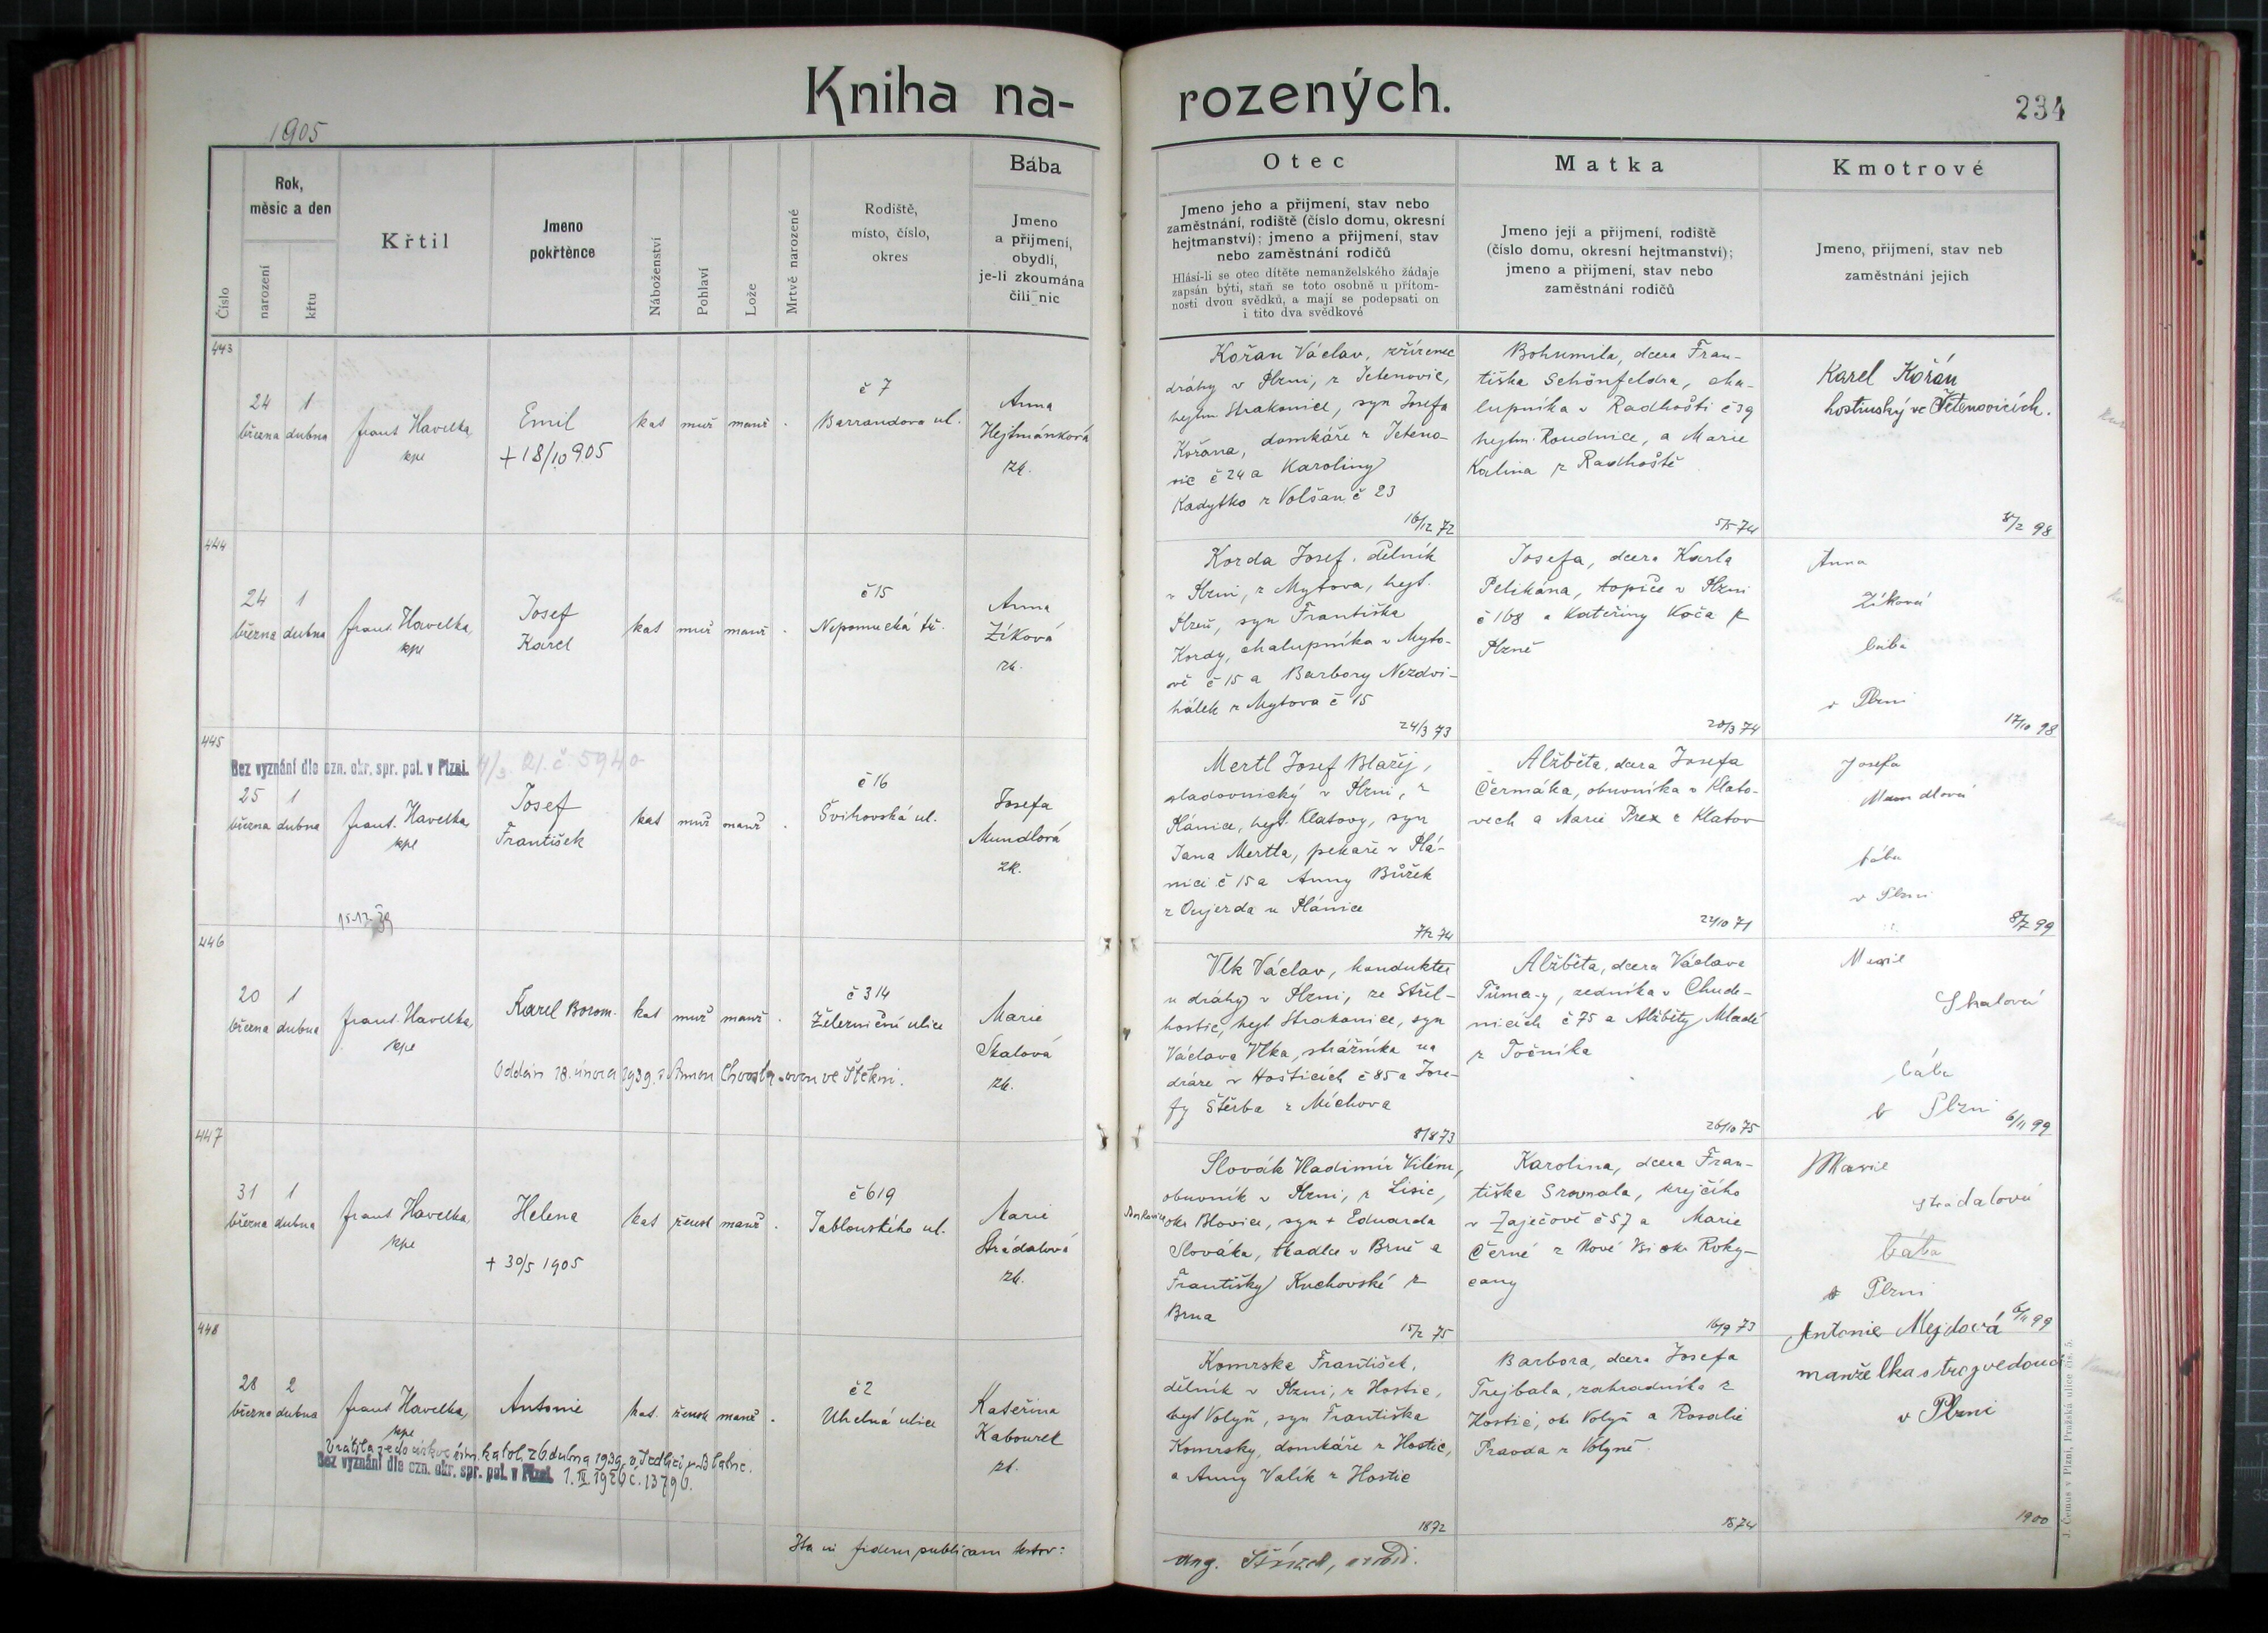 Kniha na-
rozených.
234
1905
Číslo
Rok,
měsíc a den
narození
křtu
Křtil
Jmeno
pokřtěnce
Náboženství
Pohlaví
Lože
Mrtvě narozené
Rodiště,
místo, číslo,
okres
Bába
Jmeno
a přijmení,
obydlí,
je-li zkoumána
čili nic
Otec
Jmeno jeho a přijmení, stav nebo
zaměstnání, rodiště (číslo domu, okresní
hejtmanství); jmeno a přijmení, stav
nebo zaměstnání rodičů
Hlásí-li se otec dítěte nemanželského žádaje
zapsán býti, staň se toto osobně u přítom-
nosti dvou svědků, a mají se podepsati on
i tito dva svědkové
Matka
Jmeno její a přijmení, rodiště
(číslo domu, okresní hejtmanství);
jmeno a přijmení, stav nebo
zaměstnání rodičů
Kmotrové
Jmeno, přijmení, stav neb
zaměstnání jejich
443
24
března
1
dubna
Frant. Havelka,
kpl
Emil
+ 18/10 905
kat
muž
manž
č 7
Barrandova ul.
Anna
Hejtmánková
zk.
Kořan Václav, zřízenec
dráhy v Plzni, z Četenovic,
hejtm Strakonice, syn Josefa
Kořana, domkáře z Četeno-
vic č 24 a Karoliny
Kadytko z Volšan č 23
16/12 72
Bohumila, dcera Fran-
tiška Schönfeldra, cha-
lupníka v Radhošti č 39
hejtm. Roudnice, a Marie
Kalina z Radhoště
5/5 74
Karel Kořán
hostinský ve Četenovicích.
8/2 98
444
24
března
1
dubna
Frant. Havelka,
kpl
Josef
Karel
kat
muž
manž
č 15
Nepomucká tř.
Anna
Zíková
zk.
Korda Josef, dělník
v Plzni, z Mytova, hejt.
Plzeň, syn Františka
Kordy, chalupníka v Myto-
vě č 15 a Barbory Nezdvi-
hálek z Mytova č 15
24/3 73
Josefa, dcera Karla
Pelikána, topiče v Plzni
č 168 a Kateřiny Koča z
Plzně
20/3 74
Anna
Zíková
bába
v Plzni
17/10 98
445
Bez vyznání dle ozn. okr. spr. pol. v Plzni. 4/3 21. č. 5940
25
března
1
dubna
Frant. Havelka,
kpl
Josef
František
kat
muž
manž
č 16
Švihovská ul.
Josefa
Mundlová
zk.
15.12.39
Mertl Josef Blažej,
sladovnický v Plzni, z
Plánice, hejt. Klatovy, syn
Jana Mertla, pekaře v Plá-
nici č 15 a Anny Bůžek
z Ovjerda u Plánice
7/2 74
Alžběta, dcera Josefa
Čermáka, obuvníka v Klato-
vech a Marie Prex z Klatov
22/10 71
Josefa
Mundlová
bába
v Plzni
8/7 99
446
20
března
1
dubna
Frant. Havelka,
kpl
Karel Borom.
kat
muž
manž
č 314
Železniční ulice
Marie
Skalová
zk.
Oddán 18. února 1939. s Annou ve Štěkni.
Vlk Václav, kondukter
u dráhy v Plzni, ze Střel-
hostic, hejt Strakonice, syn
Václava Vlka, strážníka na
dráze v Hošticích č 85 a Jose-
fy Štěrba z Míchova
8/8 73
Alžběta, dcera Václava
Tůma-y, zedníka v Chude-
nicích č 75 a Alžběty Mladé
z Točníka
26/10 75
Marie
Skalová
bába
v Plzni
6/11 99
447
31
března
1
dubna
Frant Havelka,
kpl
Helena
+ 30/5 1905
kat
žensk
manž
č 619
Jablonského ul.
Marie
Strádalová
zk.
Slovák Vladimír Vilém,
obuvník v Plzni, z Lisic,
okr. Blovice, syn + Eduarda
Slováka, tkadlce v Brně a
Františky Kuchovské z
Brna
15/2 75
Karolina, dcera Fran-
tiška Srovnala, krejčího
v Zaječově č 57 a Marie
Černé z Nové Vsi okr Roky-
cany
16/9 73
Marie
Stradalová
bába
v Plzni
6/11 99
448
28
března
2
dubna
Frant Havelka,
kpl
Antonie
kat.
žensk
manž
č 2
Uhelná ulice
Kateřina
Kabourek
zk.
Vrátila se do církve řím. katol. 26. dubna 1939. v Sedlici u Blatné.
Bez vyznání dle ozn. okr. spr. pol. v Plzni. 1. III. 1920 č. 13790.
Komrska František,
dělník v Plzni, z Hostic,
hejt Volyň, syn Františka
Komrsky, domkáře z Hostic,
a Anny Valík z Hostic
1872
Barbora, dcera Josefa
Trejbala, zahradníka z
Hostic, okr Volyň a Rosalie
Pravda z Volyně
1874
Antonie Mejdová
manželka strojvedouc
v Plzni
1900
Ita in fidem publicam testor:
J. Čemus v Plzni, Pražská ulice čís. 5.